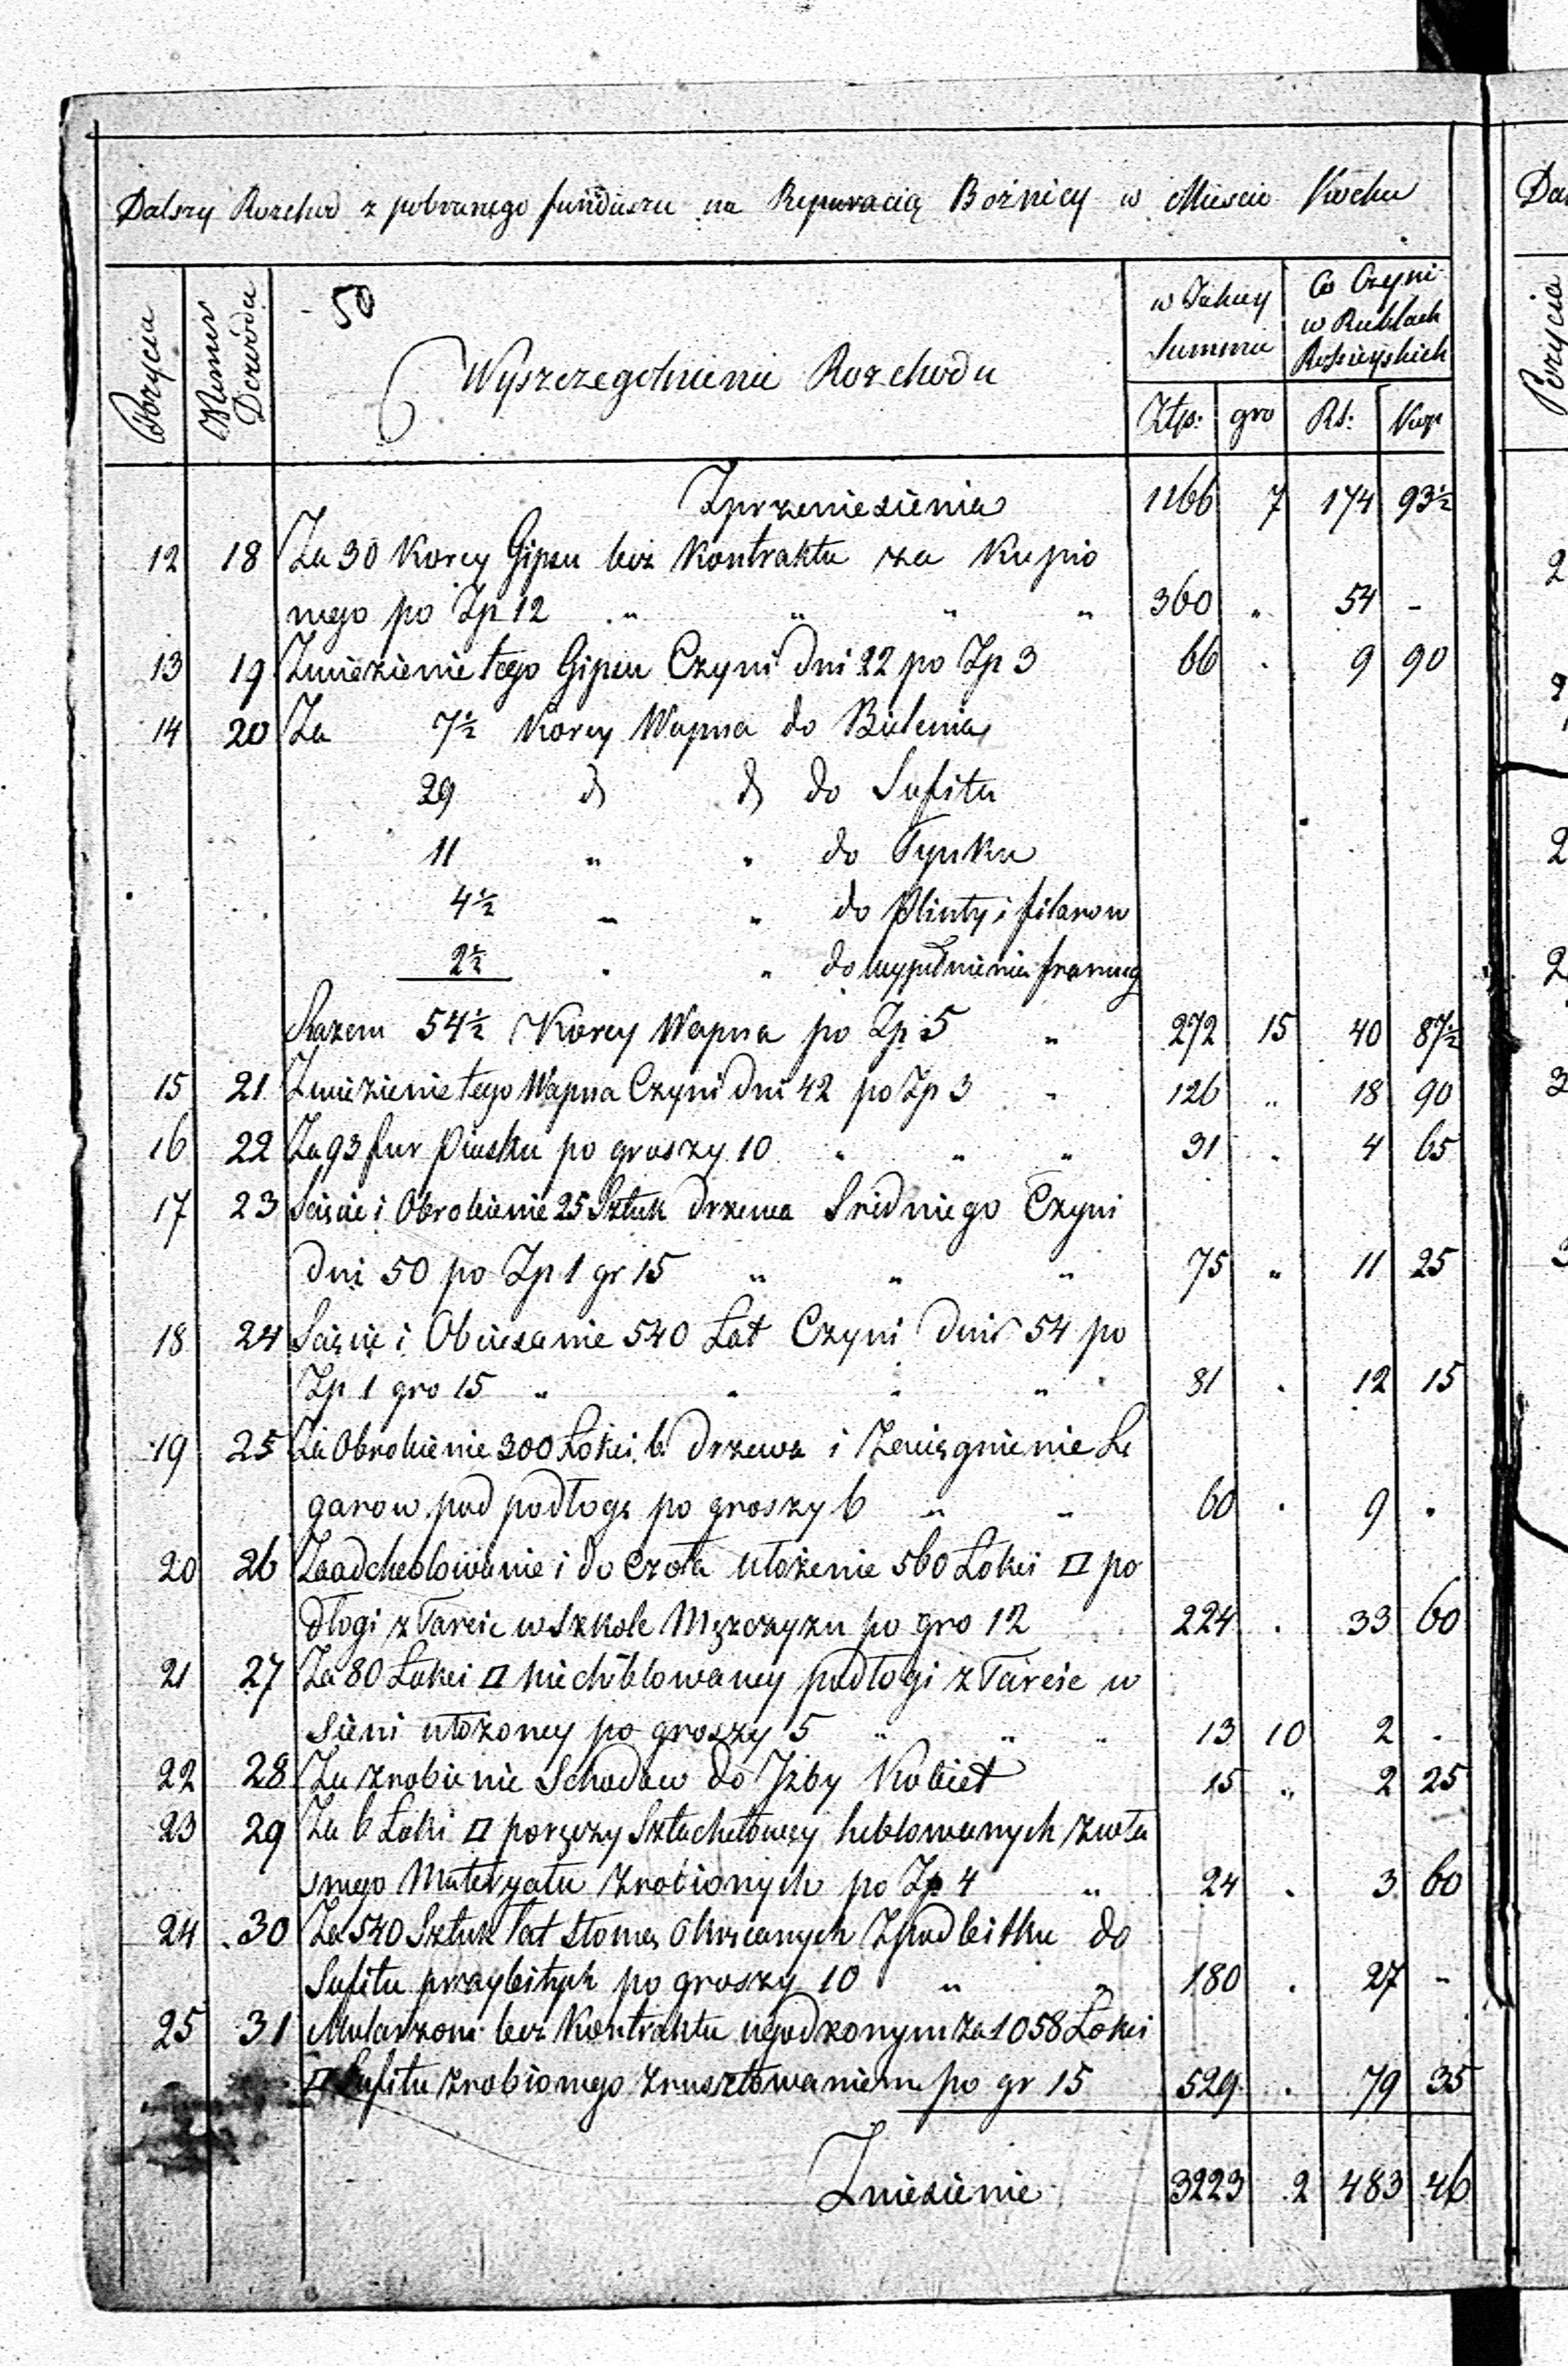 Dalszy Rozchod z pobranego funduszu na Reparacią Bożnicy w Mieście Kocku
Pozycia
Numer Dowodu
- 50
Wyszczegolnienie Rozchodu
w Jakiey Summie
Co Czyni w Rublach Rossieyskich
Złp: gro Rs: Kop
Zprzeniesienia 1166 7 174 93½
12 18 Za 30 Korcy Gipsu bez Kontraktu za Kupio
nego po Zp 12 " " " " 360 " 54 -
13 19 Zwiezienie tego Gipsu Czyni dni 22 po Zp 3 66 . 9 90
14 20 Za 7½ Korcy Wapna do Bielenia
29 d d do Sufitu
11 " " do Tynku
4½ " " do Plinty i filarow
2½ " " do wypełnienia framug
Razem 54½ Korcy Wapna po Zp 5 " 272 15 40 87½
15 21 Zwiezienie tego Wapna Czyni dni 42 po Zp 3 " 126 " 18 90
16 22 Za 93 fur Piasku po groszy 10 " " " 31 " 4 65
17 23 Scięcie i Obrobienie 25 Sztuk drzewa Sredniego Czyni
dni 50 po Zp 1 gr 15 " " " 75 " 11 25
18 24 Scięcie i Obciesanie 540 Łat Czyni dni 54 po
Zp 1 gro 15 " " " " 81 . 12 15
19 25 Za Obrobienie 300 Łokci b drzewa i Zaciągnienie Le
garow pod podłogę po groszy 6 " " 60 . 9 "
20 26 Za odcheblowanie i do Czoła ułożenie 560 Łokci □ po
dłogi z Tarcic w Szkole Męzczyzn po gro 12 224 . 33 60
21 27 Za 80 Łokci □ niecheblowaney podłogi z Tarcic w
Sieni ułożoney po groszy 5 " " " 13 10 2 -
22 28 Za zrobienie Schodow do Jzby Kobiet 15 " 2 25
23 29 Za 6 Łokci □ poręczy Sztachetowey heblowanych z wła
snego Materyału zrobionych po Zp 4 " 24 . 3 60
24 30 Za 540 Sztuk łat Słomą Okręcanych Zpodbitku do
Sufitu przybitych po groszy 10 " " 180 . 27 -
25 31 Mularzom bez Kontraktu ugodzonym za 1058 Łokci
□ Sufitu zrobionego z rusztowaniem po gr 15 529 . 79 35
Zniesienie 3223 2 483 46